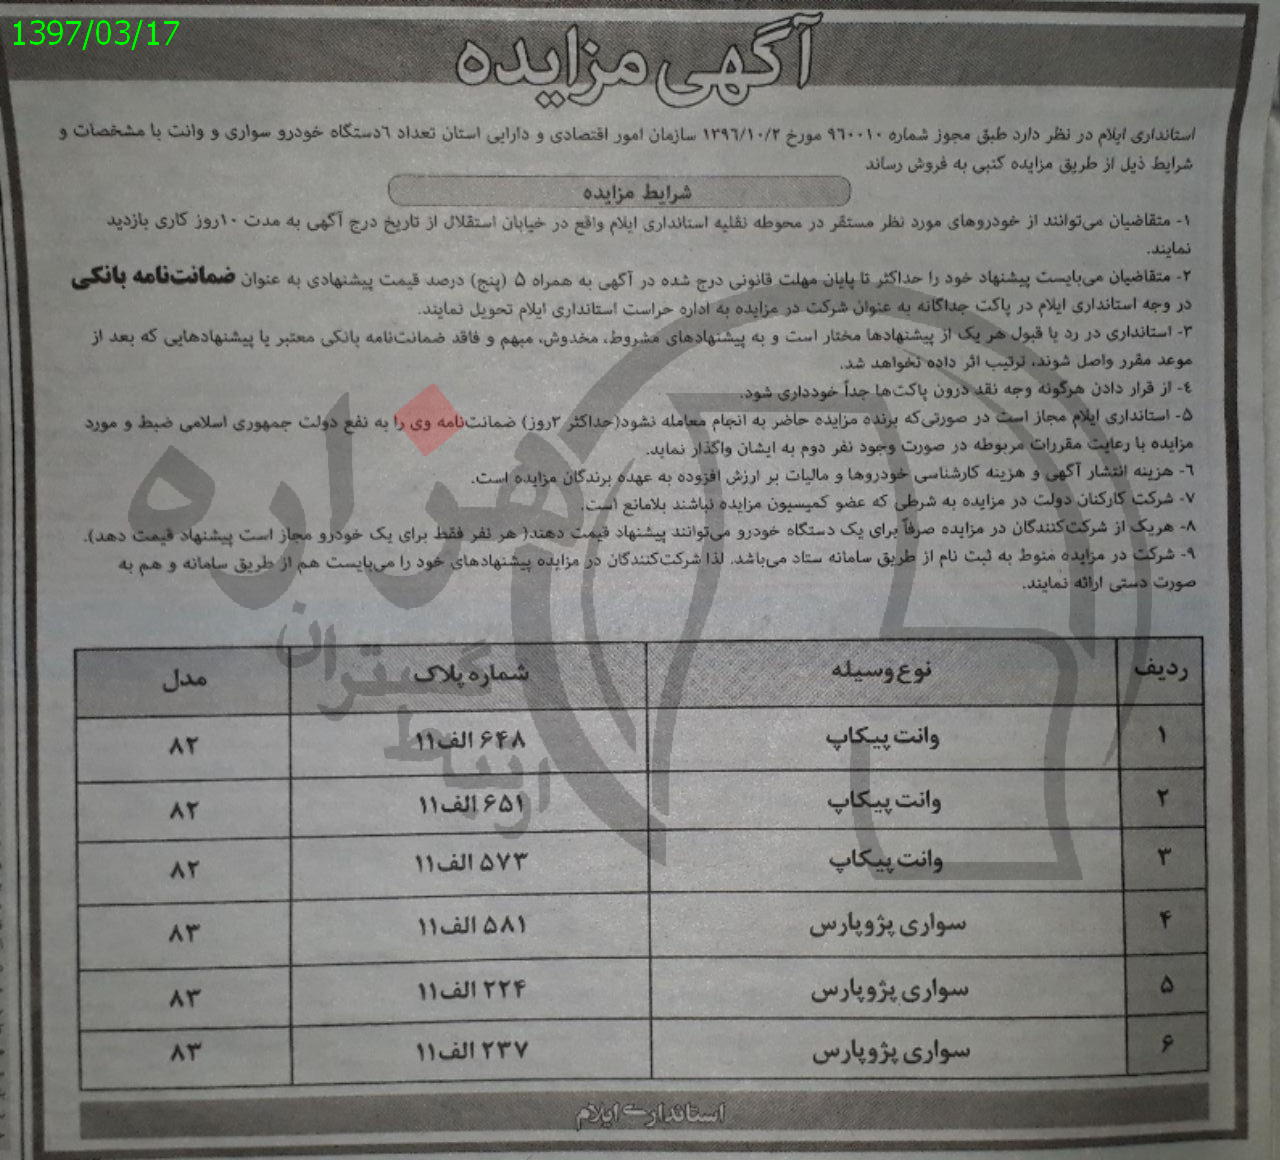 1397/03/17
آگهی مزایده
استانداری ایلام در نظر دارد طبق مجوز شماره ۹۶۰۰۱۰ مورخ ۱۳۹۶/۱۰/۲ سازمان امور اقتصادی و دارایی استان تعداد ۶دستگاه خودرو سواری و وانت با مشخصات و
شرایط ذیل از طریق مزایده کتبی به فروش رساند
شرایط مزایده
۱- متقاضیان می‌توانند از خودروهای مورد نظر مستقر در محوطه نقلیه استانداری ایلام واقع در خیابان استقلال از تاریخ درج آگهی به مدت ۱۰روز کاری بازدید
نمایند.
۲- متقاضیان می‌بایست پیشنهاد خود را حداکثر تا پایان مهلت قانونی درج شده در آگهی به همراه ۵ (پنج) درصد قیمت پیشنهادی به عنوان ضمانت‌نامه بانکی
در وجه استانداری ایلام در پاکت جداگانه به عنوان شرکت در مزایده به اداره حراست استانداری ایلام تحویل نمایند.
۳- استانداری در رد یا قبول هر یک از پیشنهادها مختار است و به پیشنهادهای مشروط، مخدوش، مبهم و فاقد ضمانت‌نامه بانکی معتبر یا پیشنهادهایی که بعد از
موعد مقرر واصل شوند، ترتیب اثر داده نخواهد شد.
۴- از قرار دادن هرگونه وجه نقد درون پاکت‌ها جداً خودداری شود.
۵- استانداری ایلام مجاز است در صورتی‌که برنده مزایده حاضر به انجام معامله نشود(حداکثر ۳روز) ضمانت‌نامه وی را به نفع دولت جمهوری اسلامی ضبط و مورد
مزایده با رعایت مقررات مربوطه در صورت وجود نفر دوم به ایشان واگذار نماید.
۶- هزینه انتشار آگهی و هزینه کارشناسی خودروها و مالیات بر ارزش افزوده به عهده برندگان مزایده است.
۷- شرکت کارکنان دولت در مزایده به شرطی که عضو کمیسیون مزایده نباشند بلامانع است.
۸- هریک از شرکت‌کنندگان در مزایده صرفاً برای یک دستگاه خودرو می‌توانند پیشنهاد قیمت دهند( هر نفر فقط برای یک خودرو مجاز است پیشنهاد قیمت دهد).
۹- شرکت در مزایده منوط به ثبت نام از طریق سامانه ستاد می‌باشد. لذا شرکت‌کنندگان در مزایده پیشنهادهای خود را می‌بایست هم از طریق سامانه و هم به
صورت دستی ارائه نمایند.
ردیف نوع وسیله شماره پلاک مدل
۱ وانت پیکاپ ۶۴۸ الف۱۱ ۸۲
۲ وانت پیکاپ ۶۵۱ الف۱۱ ۸۲
۳ وانت پیکاپ ۵۷۳ الف۱۱ ۸۲
۴ سواری پژو پارس ۵۸۱ الف۱۱ ۸۳
۵ سواری پژو پارس ۲۲۴ الف۱۱ ۸۳
۶ سواری پژو پارس ۲۳۷ الف۱۱ ۸۳
استانداری ایلام
هزاره
ارتباط گستران